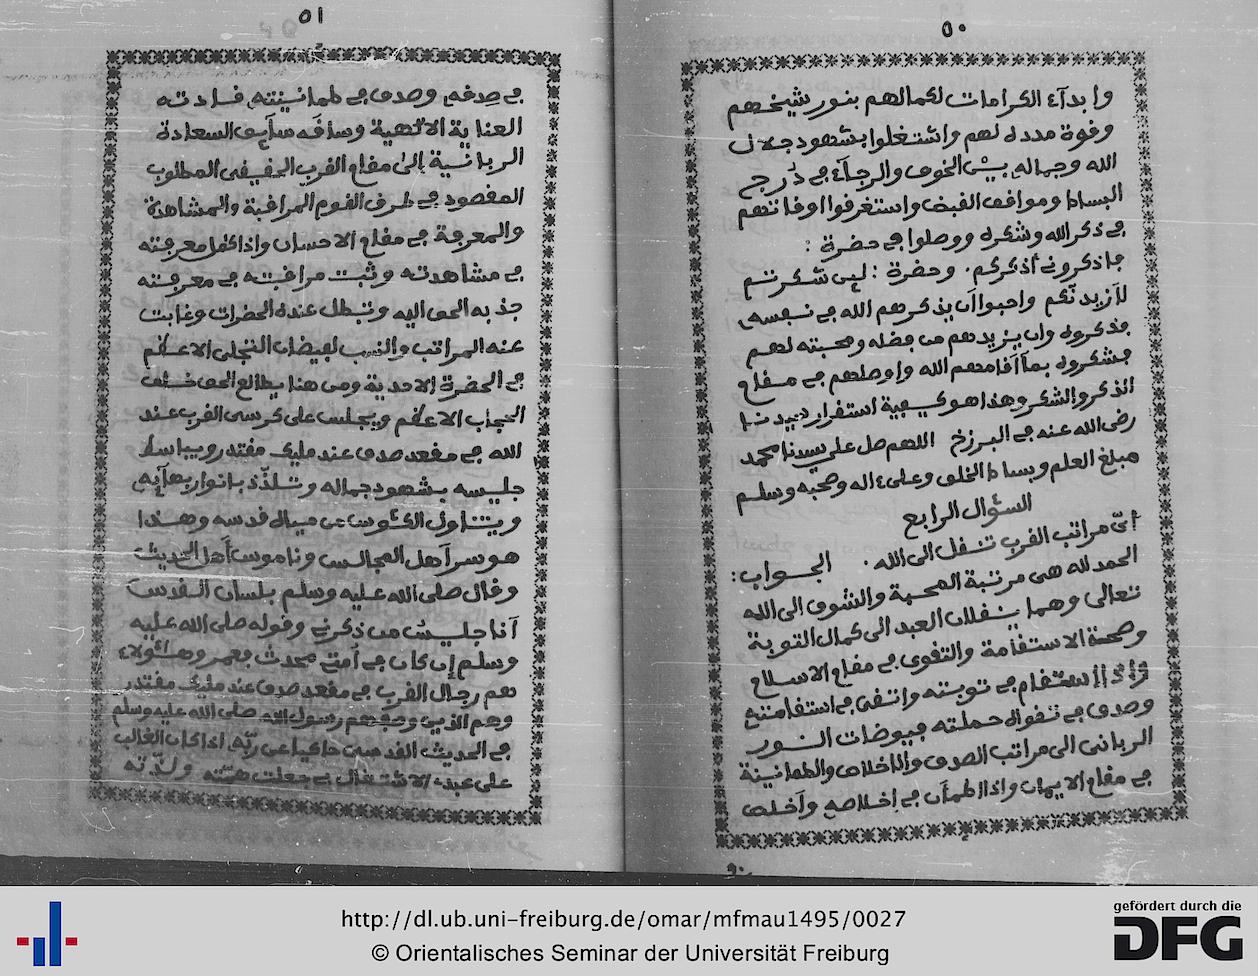 ٥٠
وابداء الكرامات لكمالهم بنور شيخهم
وقوة مدده لهم واشتغلوا بشهود جلال
الله وجماله بيْن الخوف والرجآء في دَرج
البساط ومواقف القبض واستغرقوا اوقاتهم
في ذكر الله وشكره ووصلوا في حضرة :
فاذكروني أذكركم . وحضرة : لئن شكرتم
لأزيدنّكم واحبوا أن يذكرهم الله في نفسه
فذكروه وان يزيدهم من فضله ومحبته لهم
فشكروه بما أقامهم الله واوصلهم في مقام
الذكر والشكر وهذا هو كيفية استقرار سيدنا
رضي الله عنه في البرزخ اللهم صل على سيدنا محمد
مبلغ العلم وبساط الخلق وعلى ءاله وصحبه وسلم
السئوال الرابع
أيّ مراتب القرب تنقل الى الله . الجواب :
الحمد لله هي مرتبة المحبة والشوق الى الله
تعالى وهما ينقلان العبد الى كمال التوبة
وصحة الاستقامة والتقوى في مقام الاسلام
واذا استقام في توبته واتقى في استقامته
وصدق في تقواه حملته فيوضات النور
الرباني الى مراتب الصدق والاخلاص والطمانينة
في مقام الايمان واذا اطمأن في إخلاصه وأخلص
٥١
في صدقه وصدق في طمانينته قادته
العناية الالهية وساقه سآيق السعادة
الربانية إلى مقام القرب الحقيقي المطلوب
المقصود في طرف القوم المراقبة والمشاهدة
والمعرفة في مقام الاحسان واذا كمل معرفته
في مشاهدته وثبت مراقبته في معرفته
جذبه الحق اليه وتبطل عنده الحضرات وغابت
عنه المراتب والنسب لفيضان التجلى الاعظم
في الحضرة الاحدية ومن هنا يطالع الحق خلف
الحجاب الاعظم ويجلس على كرسي القرب عند
الله في مقعد صدق عند مليك مقتدر ويباسط
جليسه بشهود جماله وتلذّذ بانوار بهآيه
ويتناول الكئوس من مياه قدسه وهذا
هو سر أهل المجالس وناموس أهل الحديث
وقال صلى الله عليه وسلم بلسان القدس
أنا جليس من ذكرني وقوله صلى الله عليه
وسلم إن كان في أمتي محدث فعمر وهئولاء
هم رجال القرب في مقعد صدق عند مليك مقتدر
وهم الذين وصفهم رسول الله صلى الله عليه وسلم
في الحديث القدسي حاكيا عن ربّه اذا كان الغالب
على عبدى الاشتغال بي جعلت همّته ولذّته
http://dl.ub.uni-freiburg.de/omar/mfmau1495/0027
© Orientalisches Seminar der Universität Freiburg
gefördert durch die
DFG